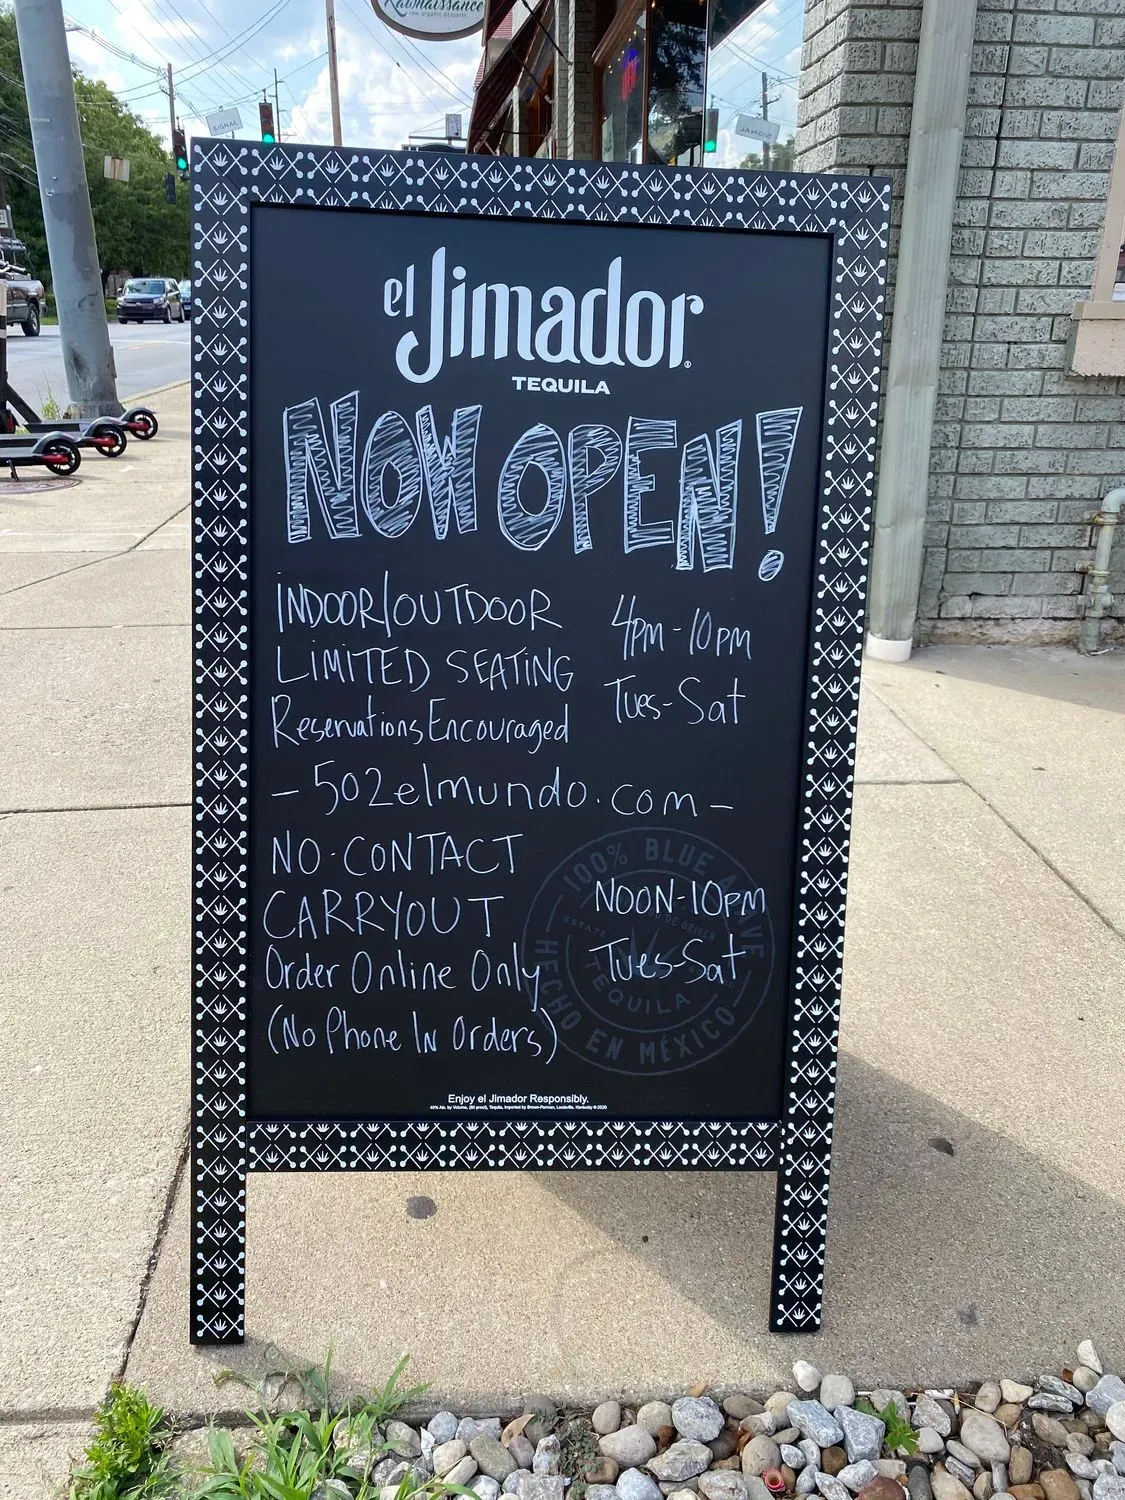 Rawnaissance
raw organic desserts
SIGNAL
el Jimador
TEQUILA
NOW OPEN!
INDOOR/OUTDOOR
LIMITED SEATING
Reservations Encouraged
4pm-10pm
Tues-Sat
- 502elmundo.com -
NO-CONTACT
CARRYOUT
Order Online Only
(No Phone In Orders)
NOON-10pm
Tues-Sat
100% BLUE AGAVE
ESTATE
DE ORIGEN
TEQUILA
HECHO EN MÉXICO
Enjoy el Jimador Responsibly.
40% Alc. by Volume, (80 proof), Tequila, Imported by Brown-Forman, Louisville, Kentucky © 2020